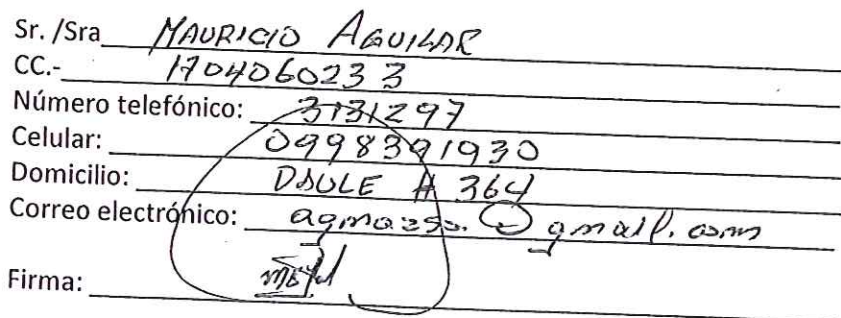 Sr. /Sra MAURICIO AGUILAR
CC.- 1704060233
Número telefónico: 3131297
Celular: 0998391930
Domicilio: DAULE # 364
Correo electrónico: @gmail.com
Firma: